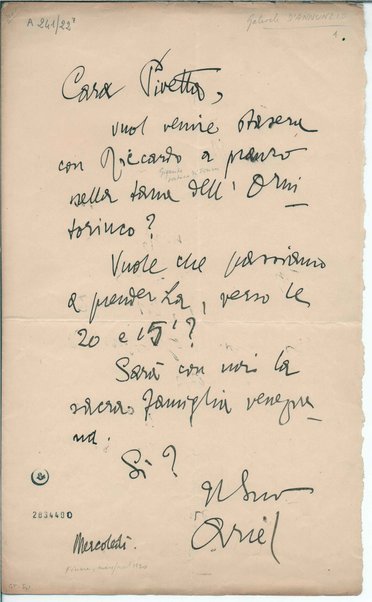 A 241/22⁷
Gabriele D'ANNUNZIO
1.
Cara Pivetta,
vuol venire stasera
con Riccardo a pranzo
nella tana dell'Orni
torinco?
Vuole che passiamo
a prenderLa, verso le
20 e 15'?
Sarà con noi la
sacra famiglia venezia
na.
Sì?
Il Suo
Ariel
2834490
Mercoledì